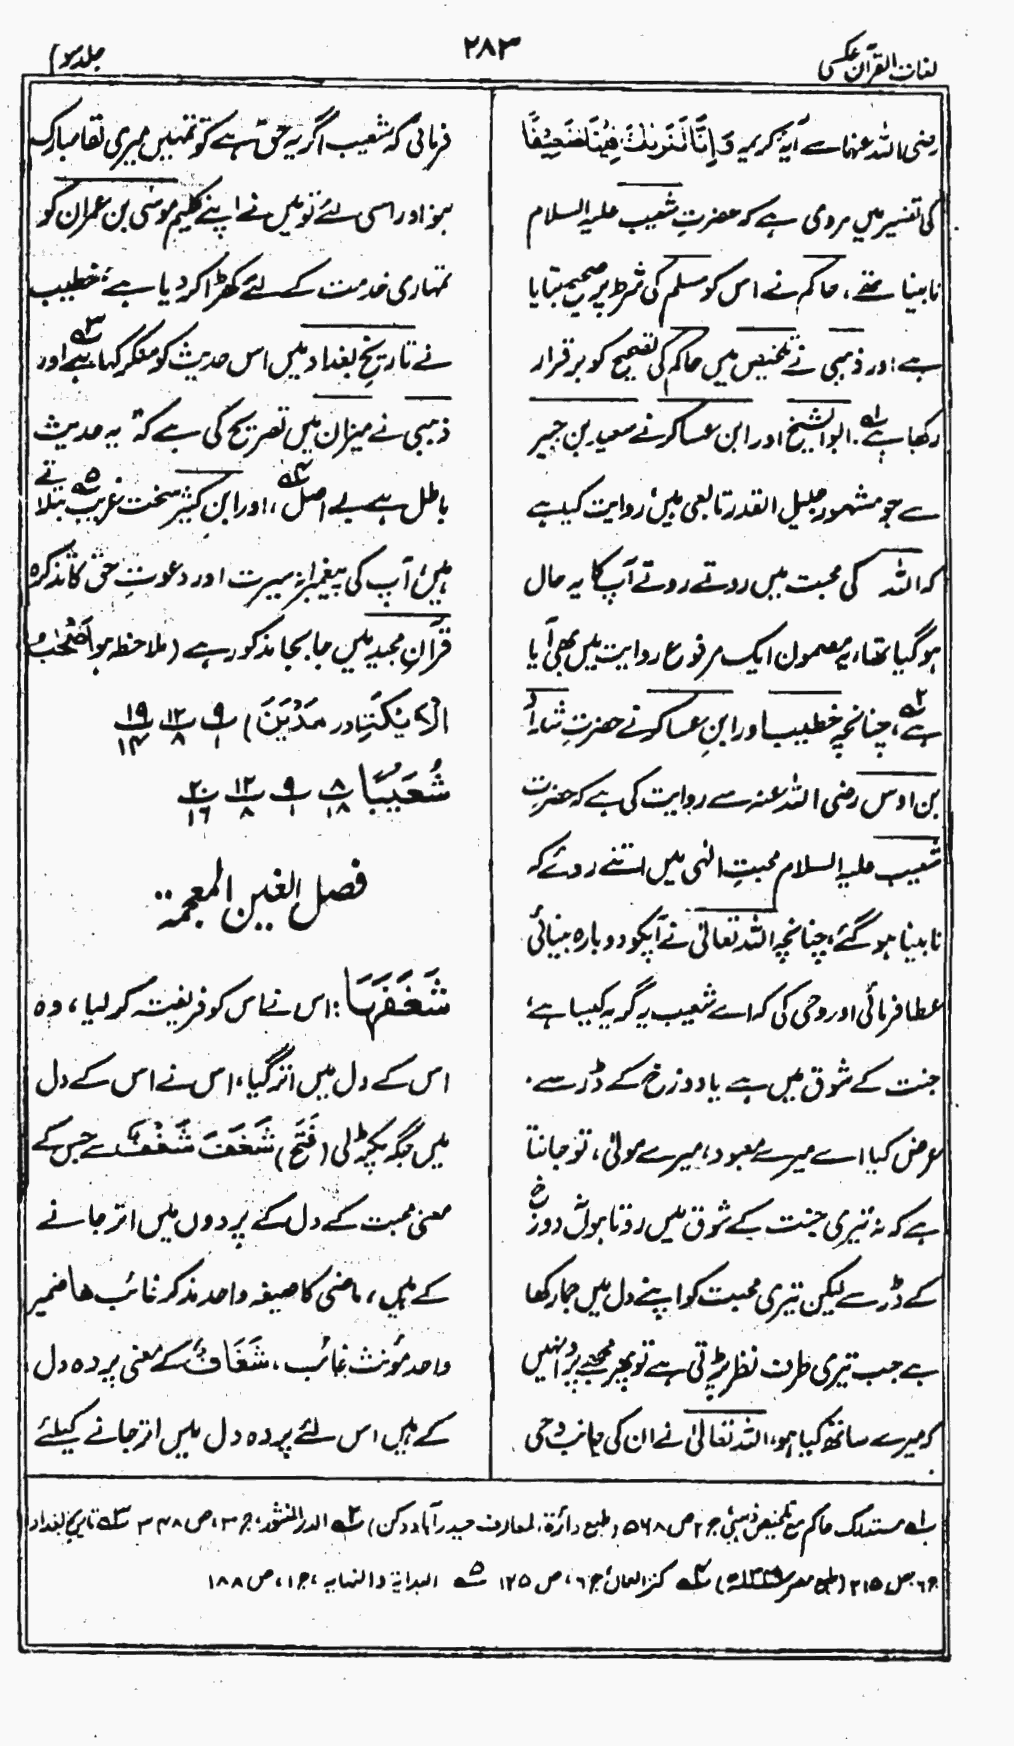 لغات القرآن عکسی
۲۸۳
جلد سوم
رضی اللہ عنہما سے آیۂ کریمہ وَاِنَّا لَنَرٰىكَ فِيْنَا ضَعِيْفًا
کی تفسیر میں مروی ہے کہ حضرتِ شعیب علیہ السلام
نابینا تھے، حاکم نے اس کو مسلم کی شرط پر صحیح بتایا
ہے اور ذہبی نے تلخیص میں حاکم کی تصحیح کو برقرار
رکھا ہے۱۔ ابو الشیخ اور ابن عساکر نے سعید بن جبیر
سے جو مشہور جلیل القدر تابعی ہیں روایت کیہے
کہ اللہ کی محبت میں روتے روتے آپ کا یہ حال
ہو گیا تھا، یہ مضمون ایک مرفوع روایت میں بھی آیا
ہے۲، چنانچہ خطیب اور ابنِ عساکر نے حضرتِ شداد
بن اوس رضی اللہ عنہ سے روایت کی ہے کہ حضرت
شعیب علیہ السلام محبتِ الٰہی میں اتنے روئے کہ
نابینا ہو گئے، چنانچہ اللہ تعالیٰ نے آپکو دوبارہ بینائی
عطا فرمائی اور وحی کی کہ اے شعیب یہ گریہ کیسا ہے؛
جنت کے شوق میں ہے یا دوزخ کے ڈر سے۔
عرض کیا اے میرے معبود، میرے مولیٰ، تو جانتا
ہے کہ نہ تیری جنت کے شوق میں روتا ہوں نہ دوزخ
کے ڈر سے لیکن تیری محبت کو اپنے دل میں جما رکھا
ہے جب تیری طرف نظر پڑتی ہے تو پھر مجھے پروا نہیں
کہ میرے ساتھ کیا ہو، اللہ تعالیٰ نے ان کی جانب وحی
فرمائی کہ شعیب اگر یہ حق ہے تو تمہیں میری لقا مبارک
ہو اور اسی لئے تو میں نے اپنے کلیم موسٰی بن عمران کو
تمہاری خدمت کے لئے کھڑا کر دیا ہے، خطیب
نے تاریخِ بغداد میں اس حدیث کو منکر کہا ہے۳ اور
ذہبی نے میزان میں تصریح کی ہے کہ یہ حدیث
باطل ہے بے اصل۴، اور ابن کثیر سخت غریب۵ بتلاتے
ہیں، آپ کی پیغمبرانہ سیرت اور دعوتِ حق کا تذکرہ
قرآنِ مجید میں جا بجا مذکور ہے (ملاحظہ ہو اَصْحٰبُ
الْاَيْكَةِ اور مَدْيَنَ) ۹/۱ ۱۲/۸ ۱۹/۱۴
شُعَيْبًا ۸/۱۸ ۹/۱ ۱۲/۸ ۲۰/۱۶
فصل الغین المعجمۃ
شَغَفَهَا: اس نے اس کو فریفتہ کر لیا، وہ
اس کے دل میں اتر گیا، اس نے اس کے دل
میں جگہ پکڑ لی (فَتَحَ) شَغَفَ شَغْفٌ سے جس کے
معنی محبت کے دل کے پردوں میں اتر جانے
کے ہیں، ماضی کا صیغہ واحد مذکر غائب ھا ضمیر
واحد مؤنث غائب، شَغَافٌ کے معنی پردہ دل
کے ہیں اس لئے پردہ دل میں اتر جانے کیلئے
۱؎ مستدرک حاکم مع تلخیص ذہبی ج ۲ ص ۵۶۸ (طبع دائرۃ المعارف حیدرآباد دکن) ۲؎ الدر المنثور، ج ۳، ص ۳۴۸ ۳؎ تاریخ بغداد
ج ۶، ص ۳۱۵ (طبع مصر ۱۳۴۹ھ) ۴؎ کنز العمال ج ۶، ص ۱۲۵ ۵؎ البدایۃ والنہایہ، ج ۱، ص ۱۸۸